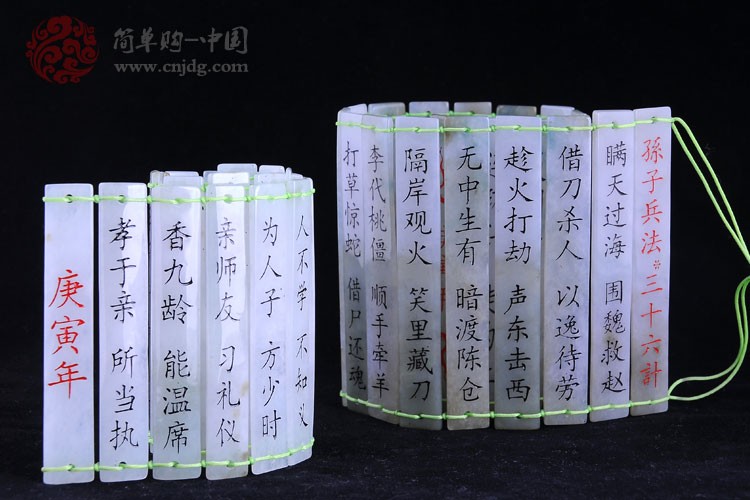 简单购—中国
www.cnjdg.com
孫子兵法※三十六計
瞒天过海 围魏救赵
借刀杀人 以逸待劳
趁火打劫 声东击西
无中生有 暗渡陈仓
隔岸观火 笑里藏刀
李代桃僵 顺手牵羊
打草惊蛇 借尸还魂
人不学 不知义
为人子 方少时
亲师友 习礼仪
香九龄 能温席
孝于亲 所当执
庚寅年